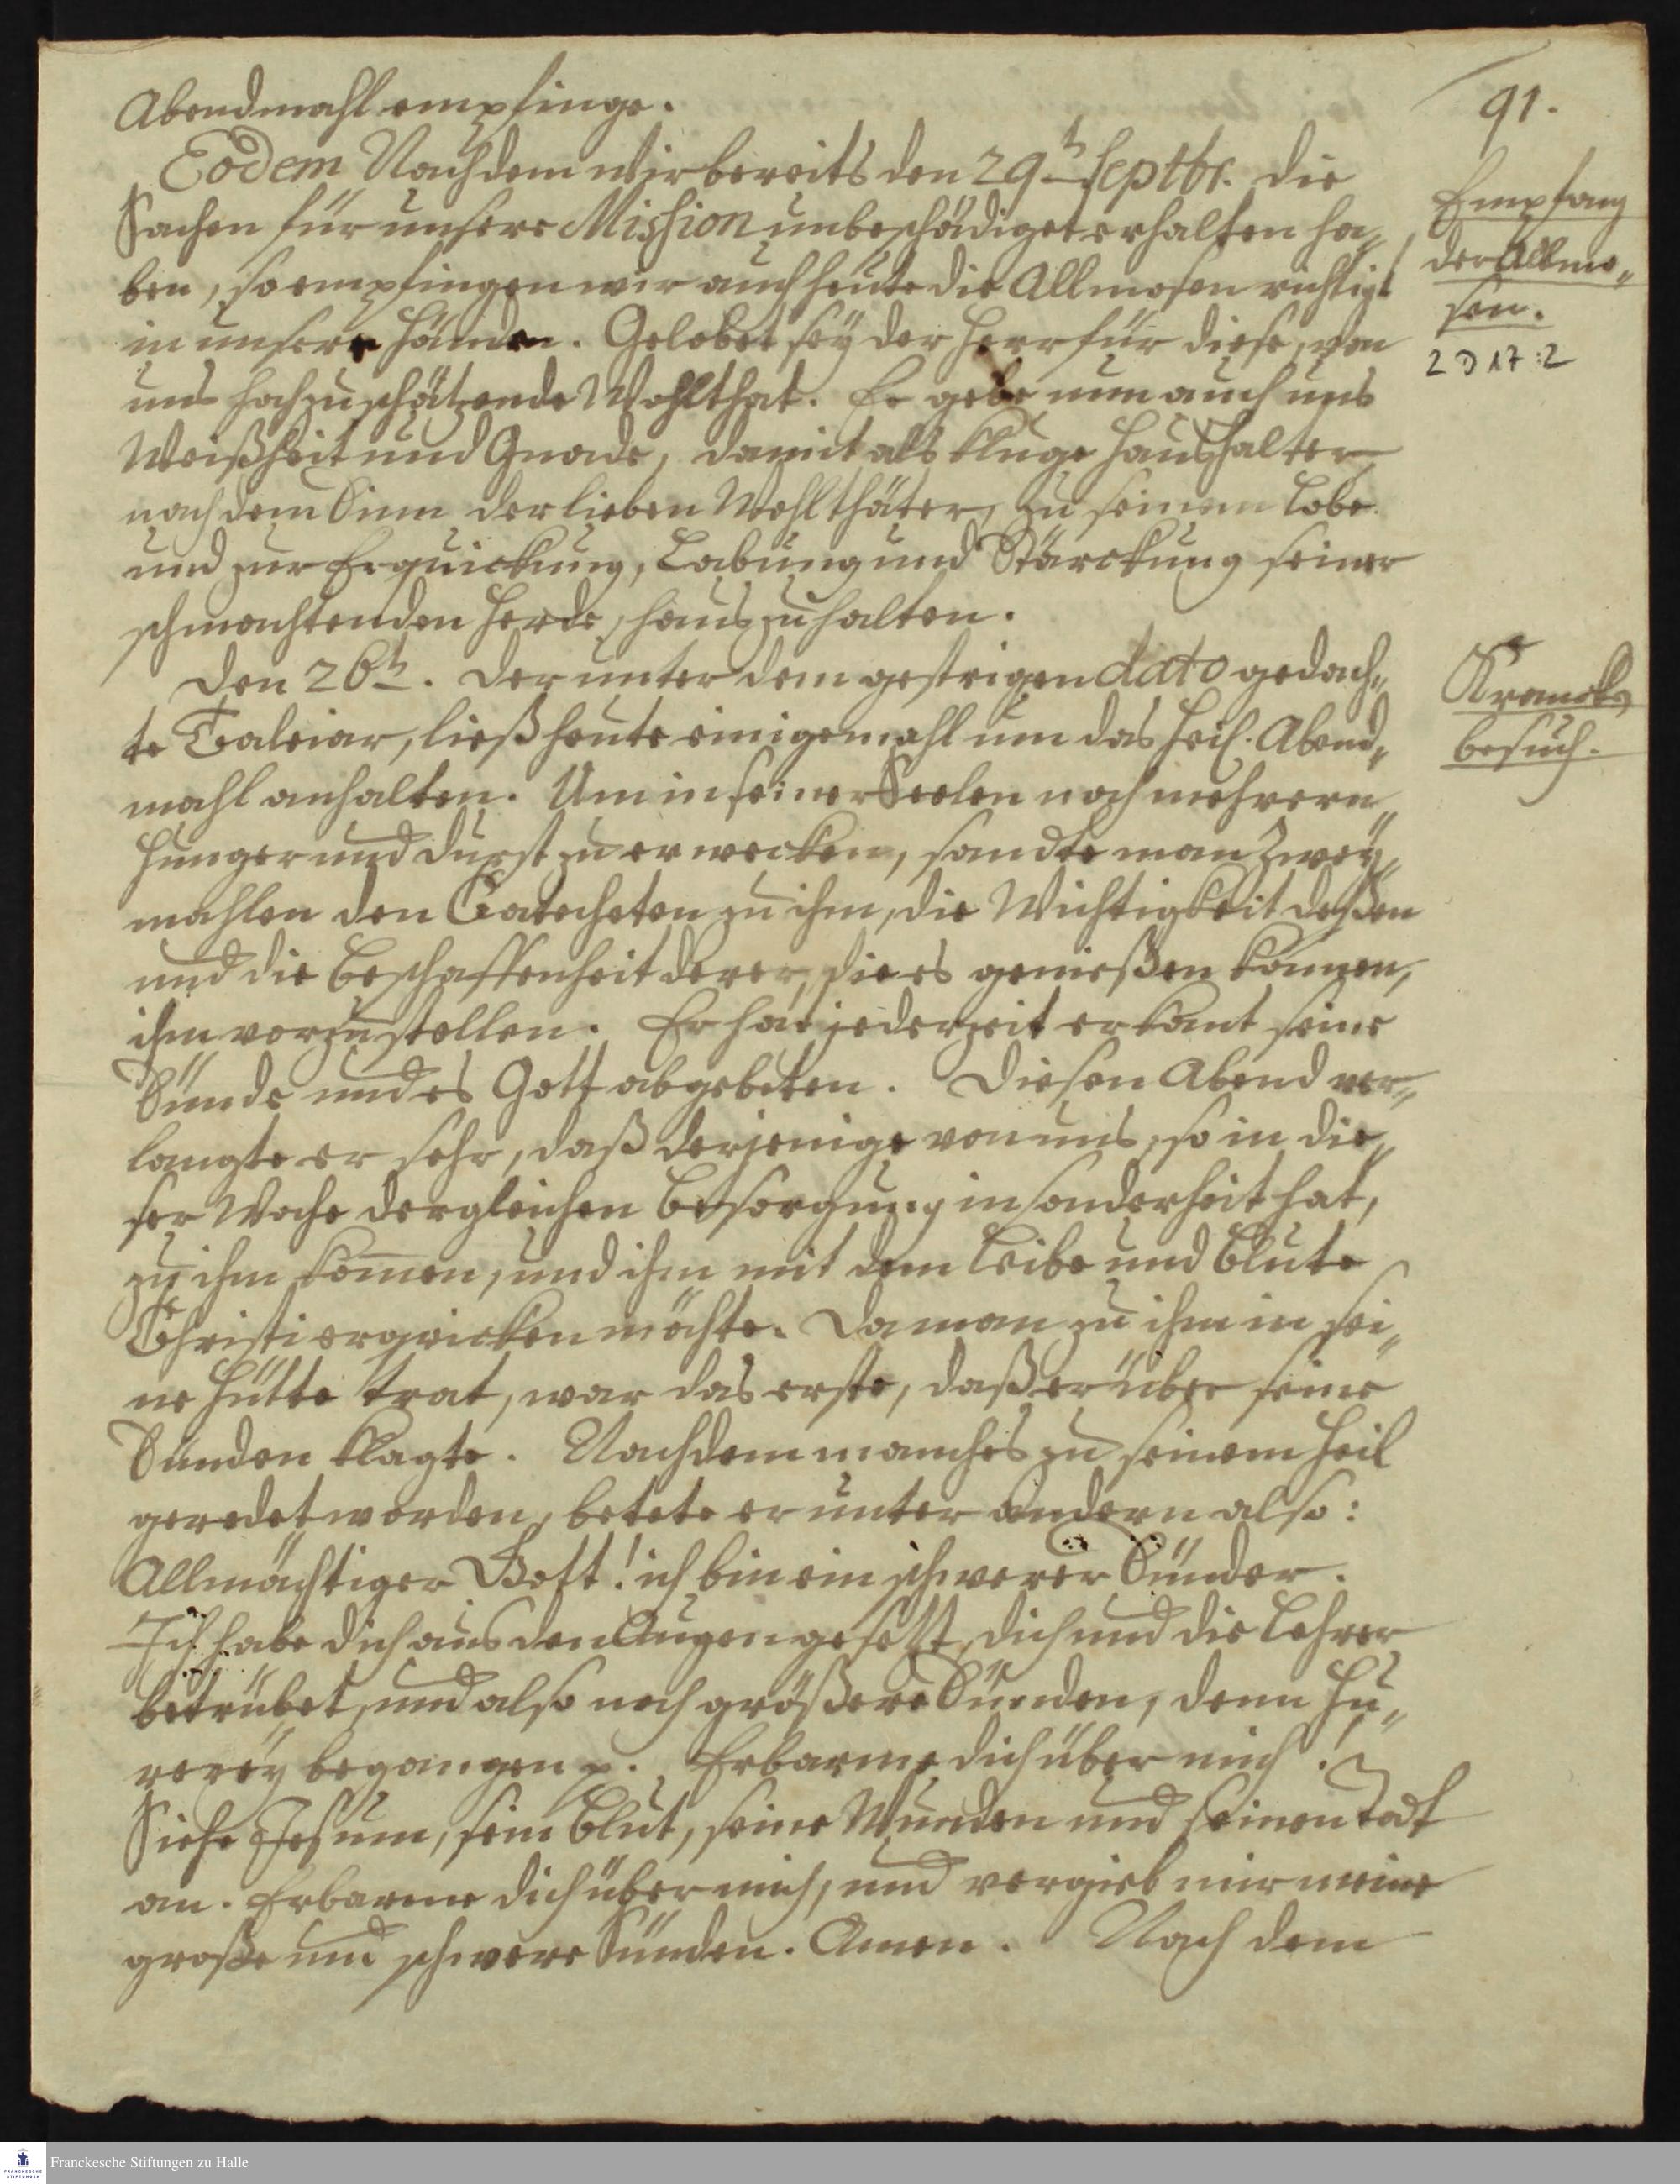 91.
Abendmahl empfinge.
Eodem Nachdem wir bereits den 29t Septbr. die
Sachen für unsere Mission unbeschädiget erhalten ha„
ben, so empfingen wir auch heute die Allmosen richtig
in unsere Hände. Gelobet sey der Herr für diese, von
uns hochzuschätzende Wohlthat. Er gebe nun auch uns
Weißheit und Gnade, damit als kluge Haushalter,
nach dem Sinn der lieben Wohlthäter, zu seinem Lobe
und zur Erquickung, Labung und Stärckung seiner
schmachtenden Herde, hauszuhalten.
Empfang
der Allmo„
sen.
2 D 17:2
Den 26t. Der unter dem gestrigen dato gedach„
te Taleiar, ließ heute einigemahl um das Heil. Abend„
mahl anhalten. Um in seiner Seelen noch mehrern
Hunger und Durst zu erwecken, sandte man zwey„
mahlen den Catecheten zu ihm, die Wichtigkeit deßen
und die Beschaffenheit derer, die es genießen können,
ihm vorzustellen. Er hat jederzeit erkant seine
Sünde und es Gott abgebeten. Diesen Abend ver„
langte er sehr, daß derjenige von uns, so in die„
ser Woche dergleichen Besorgung insonderheit hat,
zu ihm kom̅en, und ihm mit dem Leibe und Blute
Christi erqvicken möchte. Da man zu ihm in sei„
ne Hütte trat, war das erste, daß er über seine
Sünden klagte. Nachdem manches zu seinem Heil
geredet worden, betete er unter andern also:
Allmächtiger Gott! ich bin ein schwerer Sünder.
Ich habe dich aus den Augen gesetzt, dich und die Lehrer
betrübet, und also noch größere Sünden, denn Hu„
rerey begangen p. Erbarme dich über mich!
Siehe Jesum, sein Blut, seine Wunden und seinen Todt
an. Erbarme dich über mich, und vergieb mir meine
große und schwere Sünden. Amen. Nach dem
Krancken
besuch.